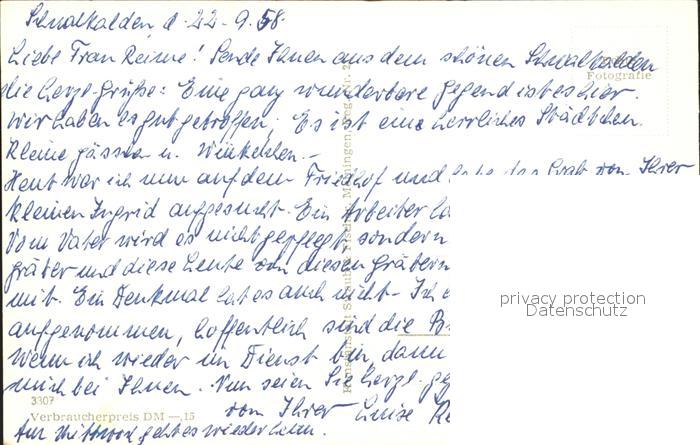 Schmalkalden d. 22.9.58.
Liebe Frau Reime! Sende Ihnen aus dem schönen Schmalkalden
die herzl. Grüße: Eine ganz wunderbare Gegend ist es hier.
Wir haben es gut getroffen, Es ist eine herrliches Städtchen.
Kleine Gässen u. Winkelchen.-
Heut war ich nun auf dem Friedhof und habe das Grab von Ihrer
kleinen Ingrid aufgesucht. Ein Arbeiter
Vom Vater wird es nicht gepflegt sondern
gräber und diese Leute von diesen Gräbern
mit. Ein Denkmal hat es auch nicht- Ich
aufgenommen, hoffentlich sind die
Wenn ich wieder im Dienst bin, dann
mich bei Ihnen. Nun seien Sie herzl.
von Ihrer Luise
Am Mittwoch geht es wieder heim.
3307
Verbraucherpreis DM —,15
Fotografie
privacy protection
Datenschutz